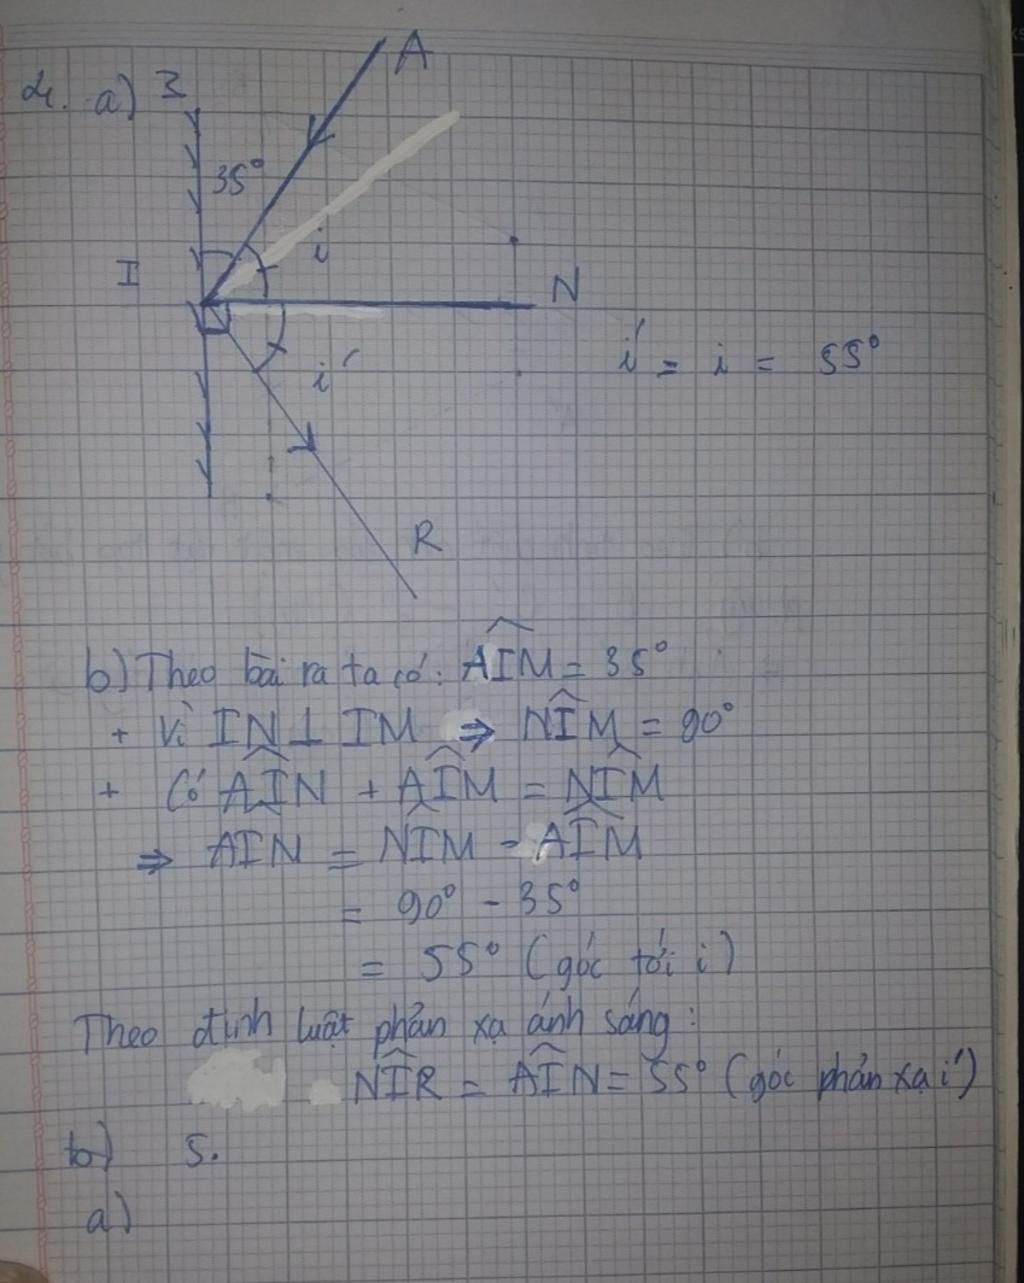 4. a)
A
35°
i
I
N
i' = i = 55°
i'
R
b) Theo bài ra ta có: AÎM = 35°
+ Vì IN ⊥ IM ⇒ NÎM = 90°
+ Có AÎN + AÎM = NÎM
⇒ AIN = NÎM - AÎM
= 90° - 35°
= 55° (góc tới i)
Theo định luật phản xạ ánh sáng:
NÎR = AÎN = 55° (góc phản xạ i')
b) 5.
a)